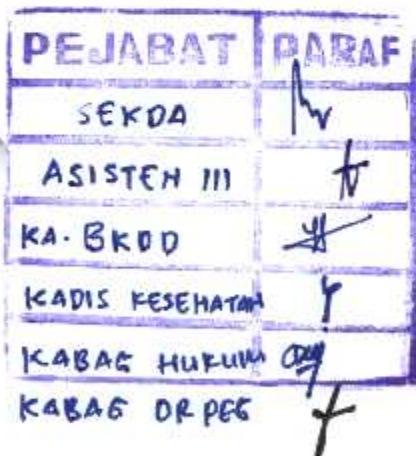 PEJABAT PARAF
SEKDA
ASISTEN III
KA. BKDD
KADIS KESEHATAN
KABAG HUKUM
KABAG ORPEG